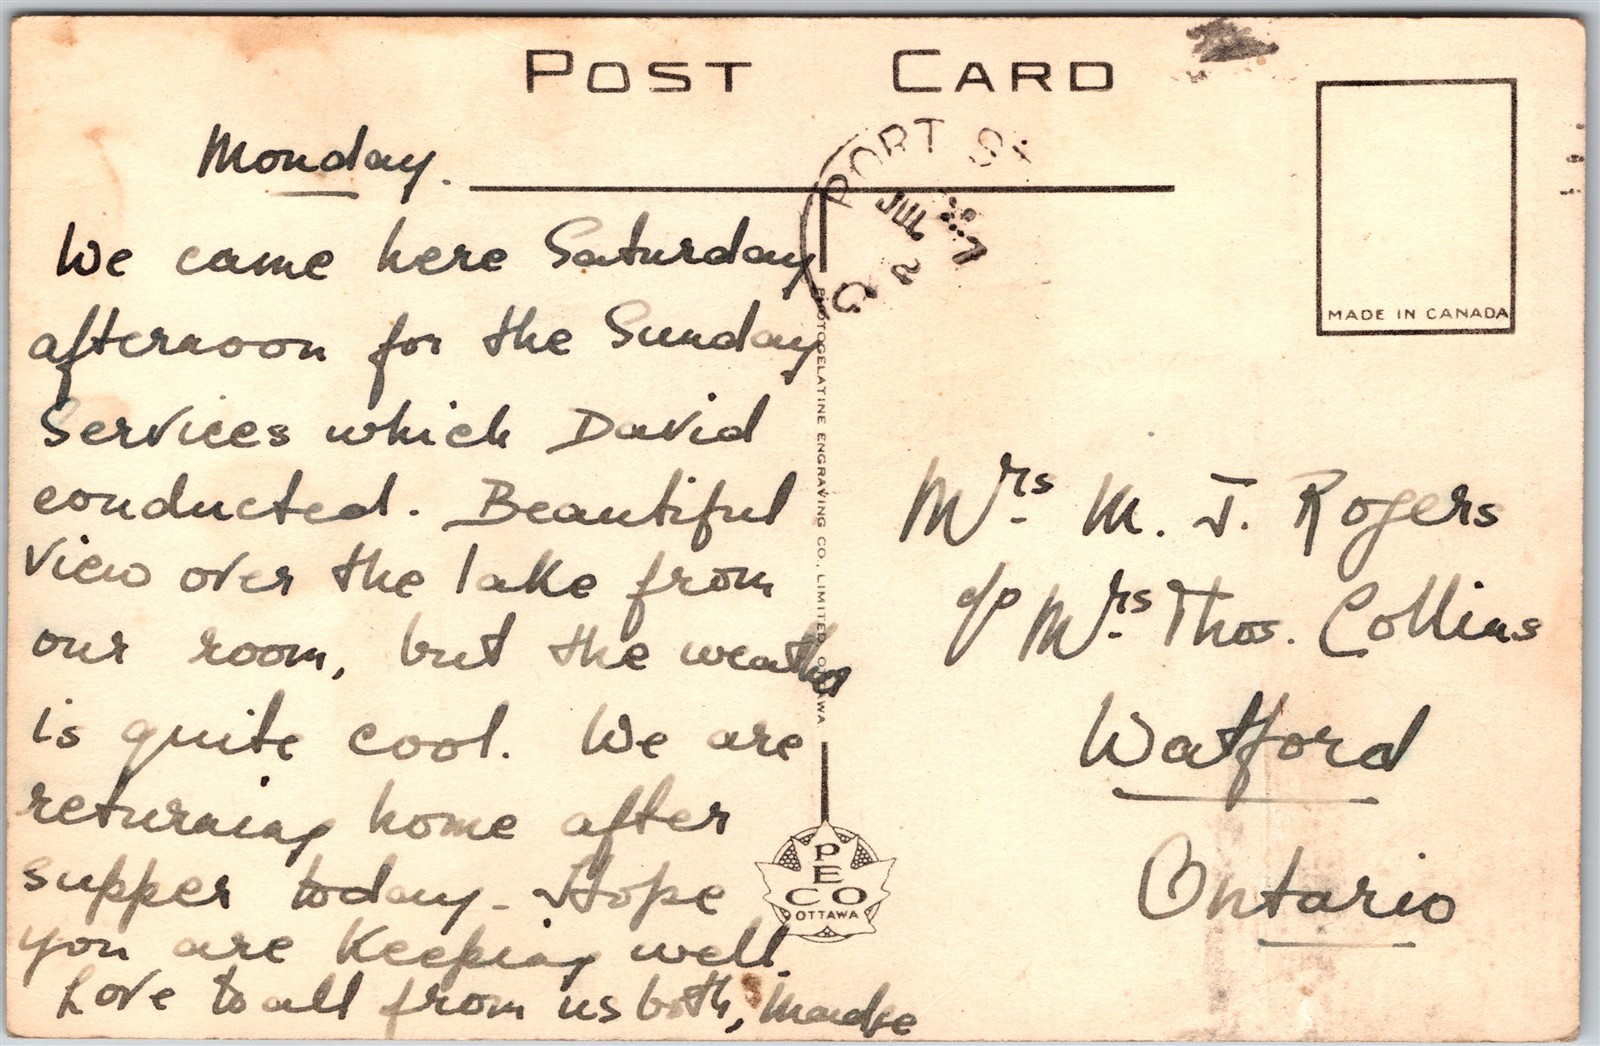 POST CARD
Monday.
We came here Saturday
afternoon for the Sunday
Services which David
conducted. Beautiful
view over the lake from
our room, but the weather
is quite cool. We are
returning home after
supper today - Hope
you are keeping well.
Love to all from us both,
PORT ST
JUL
2
PHOTOGELATINE ENGRAVING CO., LIMITED, OTTAWA
PECO
OTTAWA
MADE IN CANADA
Mrs. M. J. Rogers
c/o Mrs. Thos. Collins
Watford
Ontario